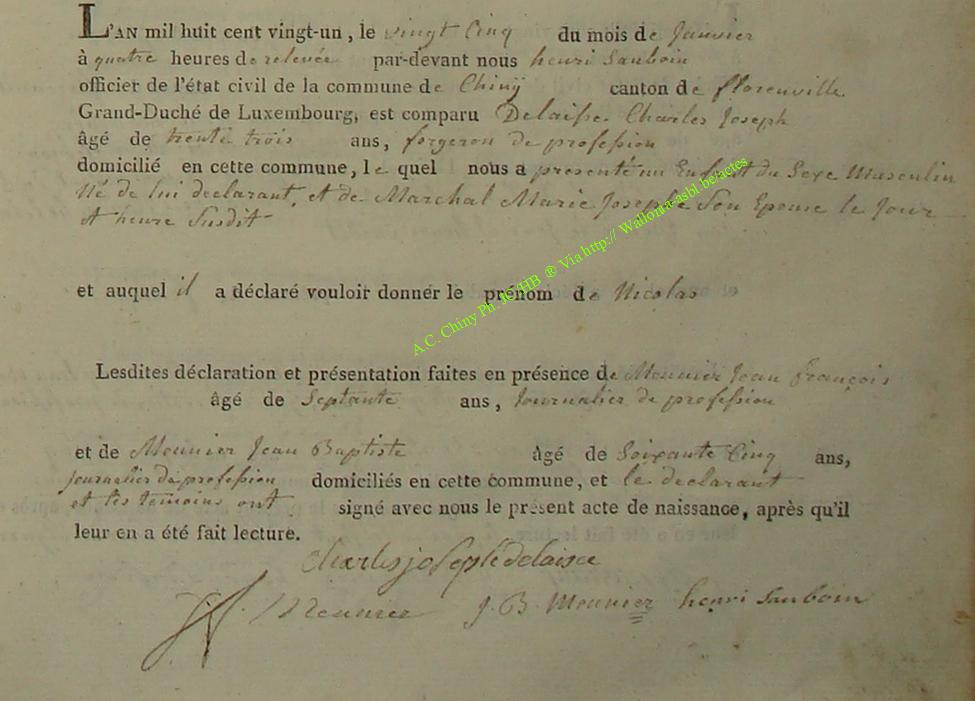 L'AN mil huit cent vingt-un, le vingt Cinq du mois de Janvier
à quatre heures de relevée par-devant nous henri Sauboin
officier de l'état civil de la commune de Chinÿ canton de florenville
Grand-Duché de Luxembourg, est comparu Delaisse Charles Joseph
âgé de trente trois ans, forgeron de profession
domicilié en cette commune, le quel nous a presenté un Enfant du Sexe Masculin
Né de lui declarant, et de Marchal Marie Josephe Son Epouse le Jour
et heure Susdit
et auquel il a déclaré vouloir donner le prénom de Nicolas
Lesdites déclaration et présentation faites en présence de Meunier Jean françois
âgé de Septante ans, Journalier de profession
et de Meunier Jean Baptiste âgé de Soixante Cinq ans,
journalier de profession domiciliés en cette commune, et le declarant
et les temoins ont signé avec nous le présent acte de naissance, après qu'il
leur en a été fait lecture.
Charles joseph delaisse
Meunier J. B. Meunier henri Sauboin
A.C. Chiny Ph. JC/HB ® Via http:// Wallonia-asbl.be/actes